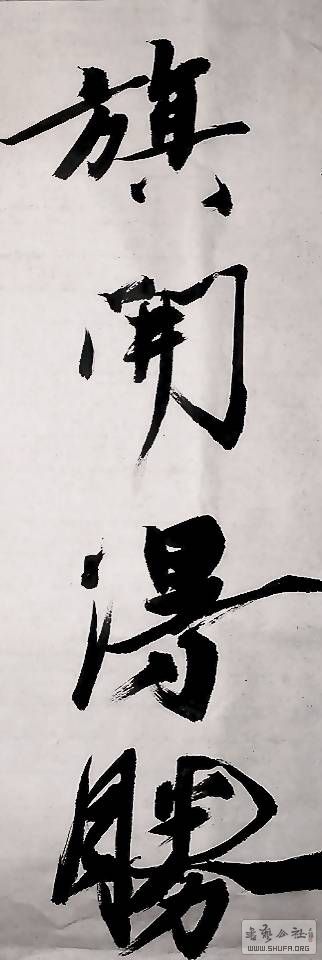 旗開得勝
书艺公社
WWW.SHUFA.ORG